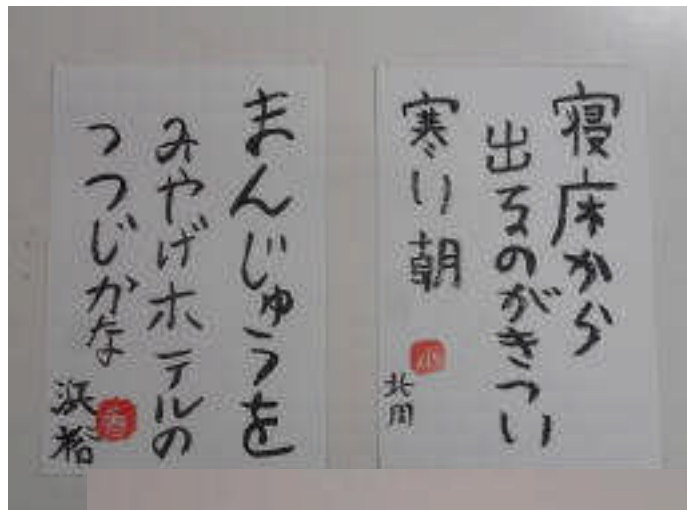 寝床から
出るのがきつい
寒い朝
まんじゅうを
みやげホテルの
つつじかな